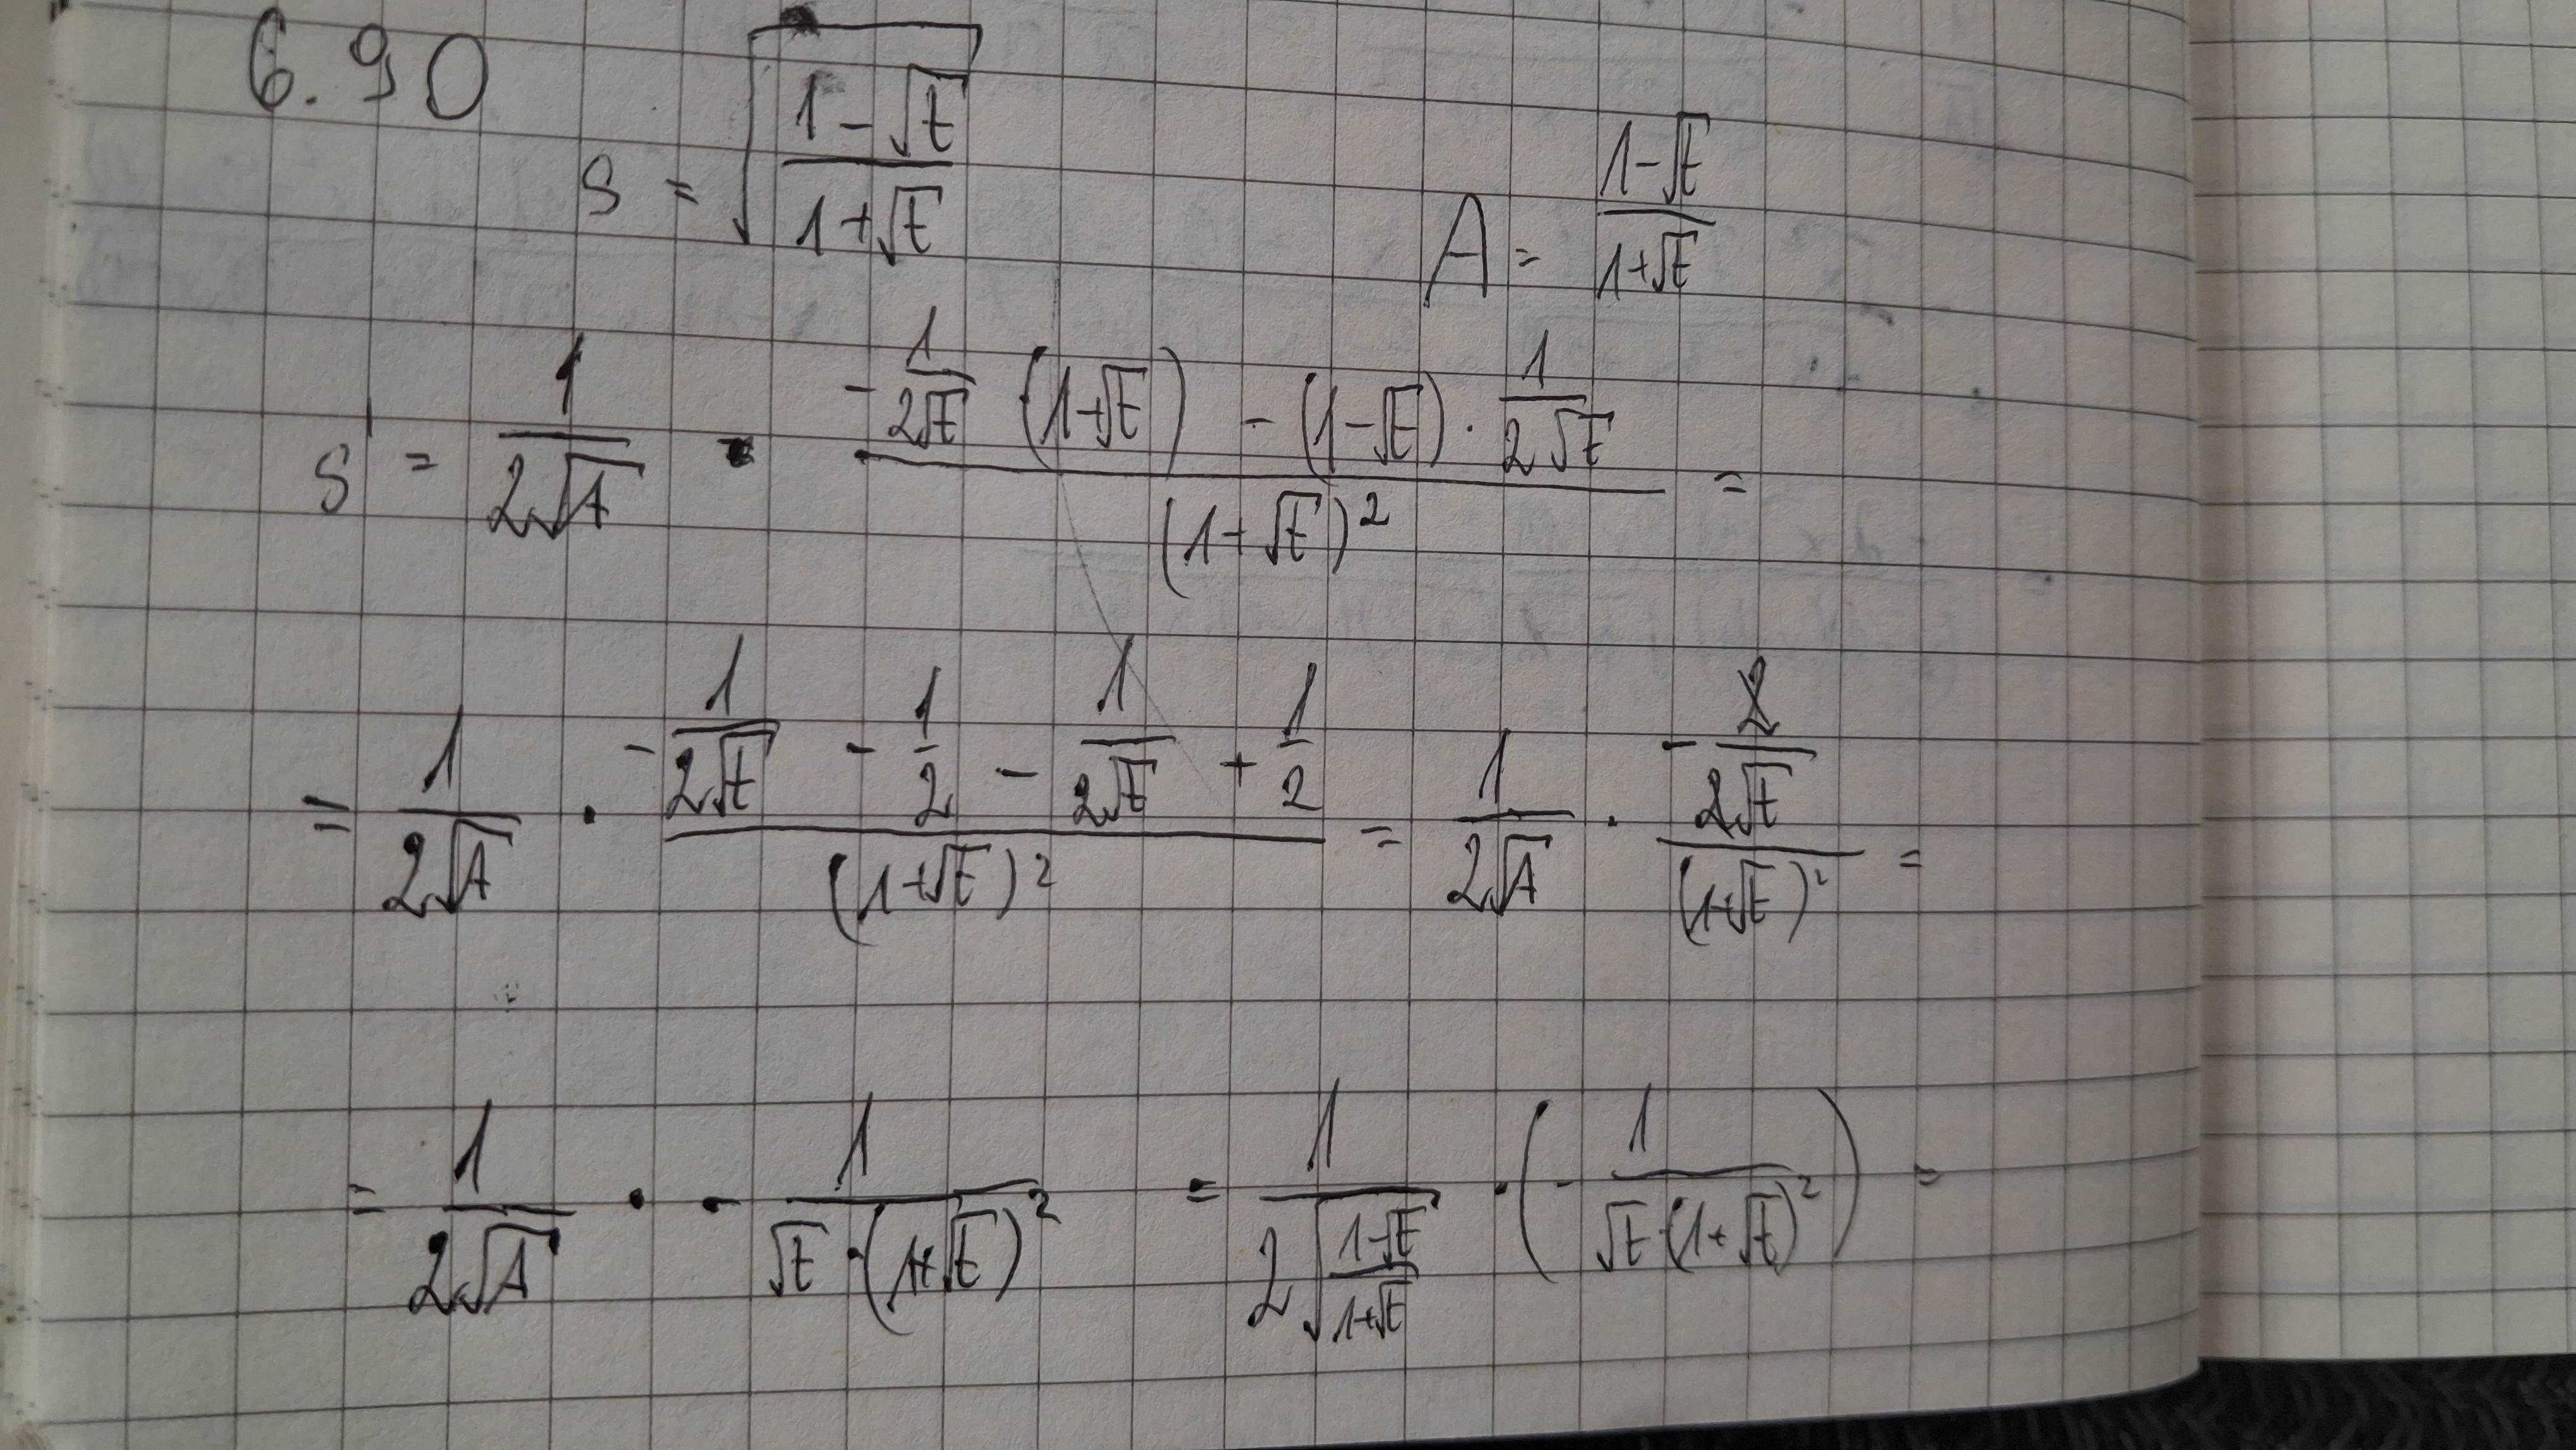 6.90
s = √((1-√t)/(1+√t))    A = (1-√t)/(1+√t)
s' = 1/(2√A) · (-1/(2√t) · (1+√t) - (1-√t) · 1/(2√t))/(1+√t)² =
= 1/(2√A) · (-1/(2√t) - 1/2 - 1/(2√t) + 1/2)/(1+√t)² = 1/(2√A) · (-2/(2√t))/(1+√t)² =
= 1/(2√A) · - 1/(√t·(1+√t)²) = 1/(2√((1-√t)/(1+√t))) · (- 1/(√t·(1+√t)²)) =